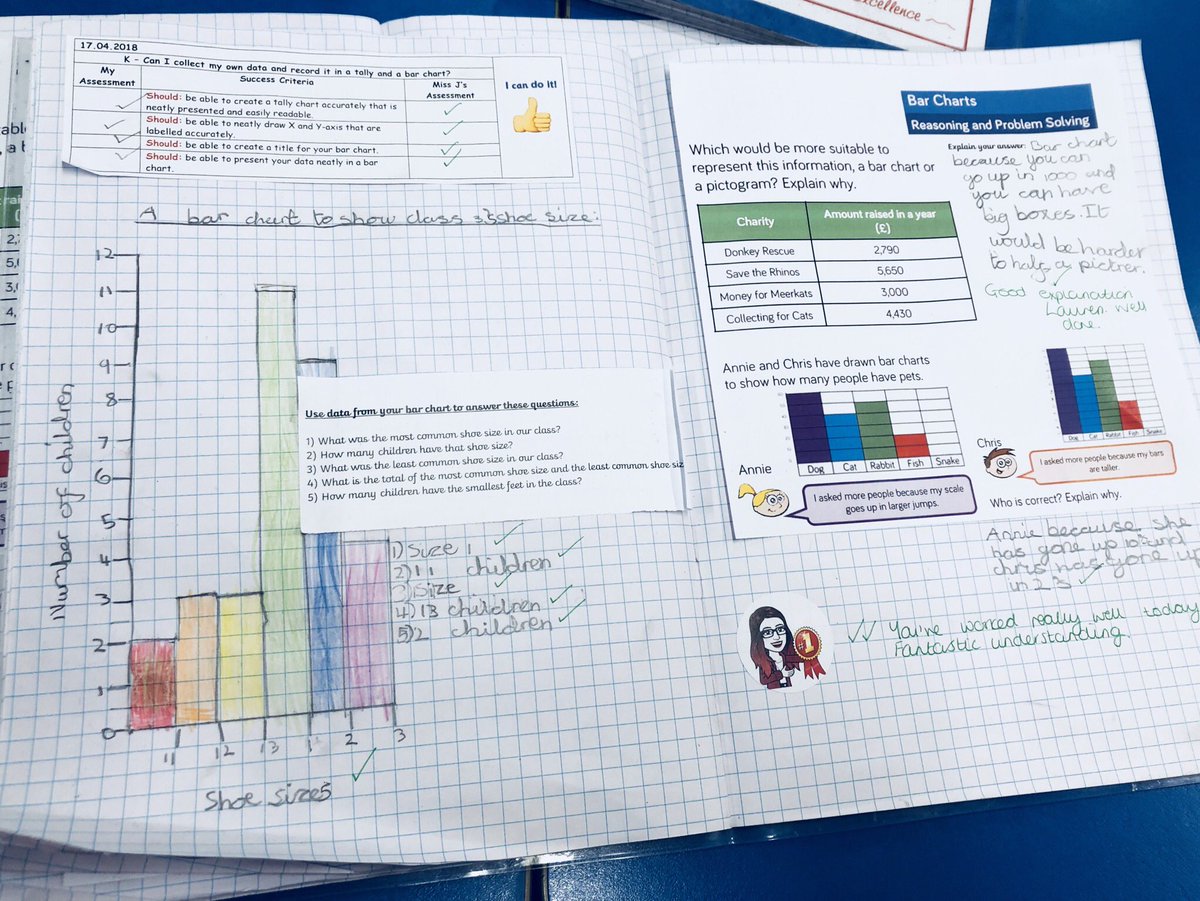 17.04.2018
K - Can I collect my own data and record it in a tally and a bar chart?
My Assessment
Success Criteria
Miss J's Assessment
Should: be able to create a tally chart accurately that is
neatly presented and easily readable.
Should: be able to neatly draw X and Y-axis that are
labelled accurately.
Should: be able to create a title for your bar chart.
Should: be able to present your data neatly in a bar
chart.
I can do it!
A bar chart to show class shoe size:
12
11
10
9
8
7
6
5
4
3
2
1
0
Number of children
11
12
13
1
2
3
Shoe sizes
Use data from your bar chart to answer these questions:
1) What was the most common shoe size in our class?
2) How many children have that shoe size?
3) What was the least common shoe size in our class?
4) What is the total of the most common shoe size and the least common shoe siz
5) How many children have the smallest feet in the class?
1) Size 1
2) 11 children
Size
4) 13 children
5) 2 children
Excellence
Bar Charts
Reasoning and Problem Solving
Which would be more suitable to
represent this information, a bar chart or
a pictogram? Explain why.
Charity
Amount raised in a year
(£)
Donkey Rescue
2,790
Save the Rhinos
5,650
Money for Meerkats
3,000
Collecting for Cats
4,430
Explain your answer: Bar chart
because you can
go up in 1000 and
you can have
big boxes. It
would be harder
to half a pictrer.
Good explanation
Lauren. Well
done.
Annie and Chris have drawn bar charts
to show how many people have pets.
Dog Cat Rabbit Fish Snake
Annie
I asked more people because my scale
goes up in larger jumps.
Dog Cat Rabbit Fish Snake
Chris
I asked more people because my bars
are taller.
Who is correct? Explain why.
Annie because she
has gone up and
chris has gone up
in 2.
#1
You've worked really well today
Fantastic understanding.